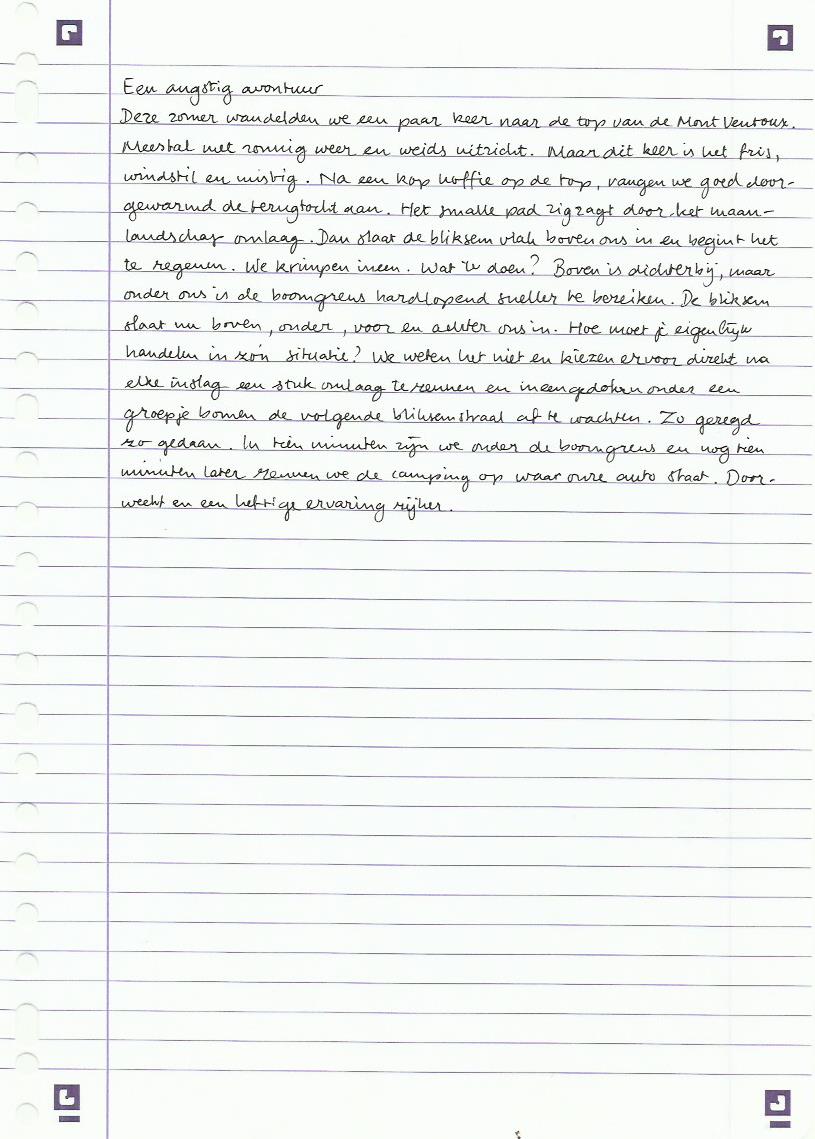 Een angstig avontuur
Deze zomer wandelden we een paar keer naar de top van de Mont Ventoux.
Meestal met zonnig weer en weids uitzicht. Maar dit keer is het fris,
windstil en mistig. Na een kop koffie op de top, vangen we goed door-
gewarmd de terugtocht aan. Het smalle pad zigzagt door het maan-
landschap omlaag. Dan slaat de bliksem vlak boven ons in en begint het
te regenen. We krimpen ineen. Wat te doen? Boven is dichterbij, maar
onder ons is de boomgrens hardlopend sneller te bereiken. De bliksem
slaat nu boven, onder, voor en achter ons in. Hoe moet je eigenlijk
handelen in zo'n situatie? We weten het niet en kiezen ervoor direkt na
elke inslag een stuk omlaag te rennen en ineengedoken onder een
groepje bomen de volgende bliksemstraal af te wachten. Zo gezegd
zo gedaan. In tien minuten zijn we onder de boomgrens en nog tien
minuten later rennen we de camping op waar onze auto staat. Door-
weekt en een heftige ervaring rijker.